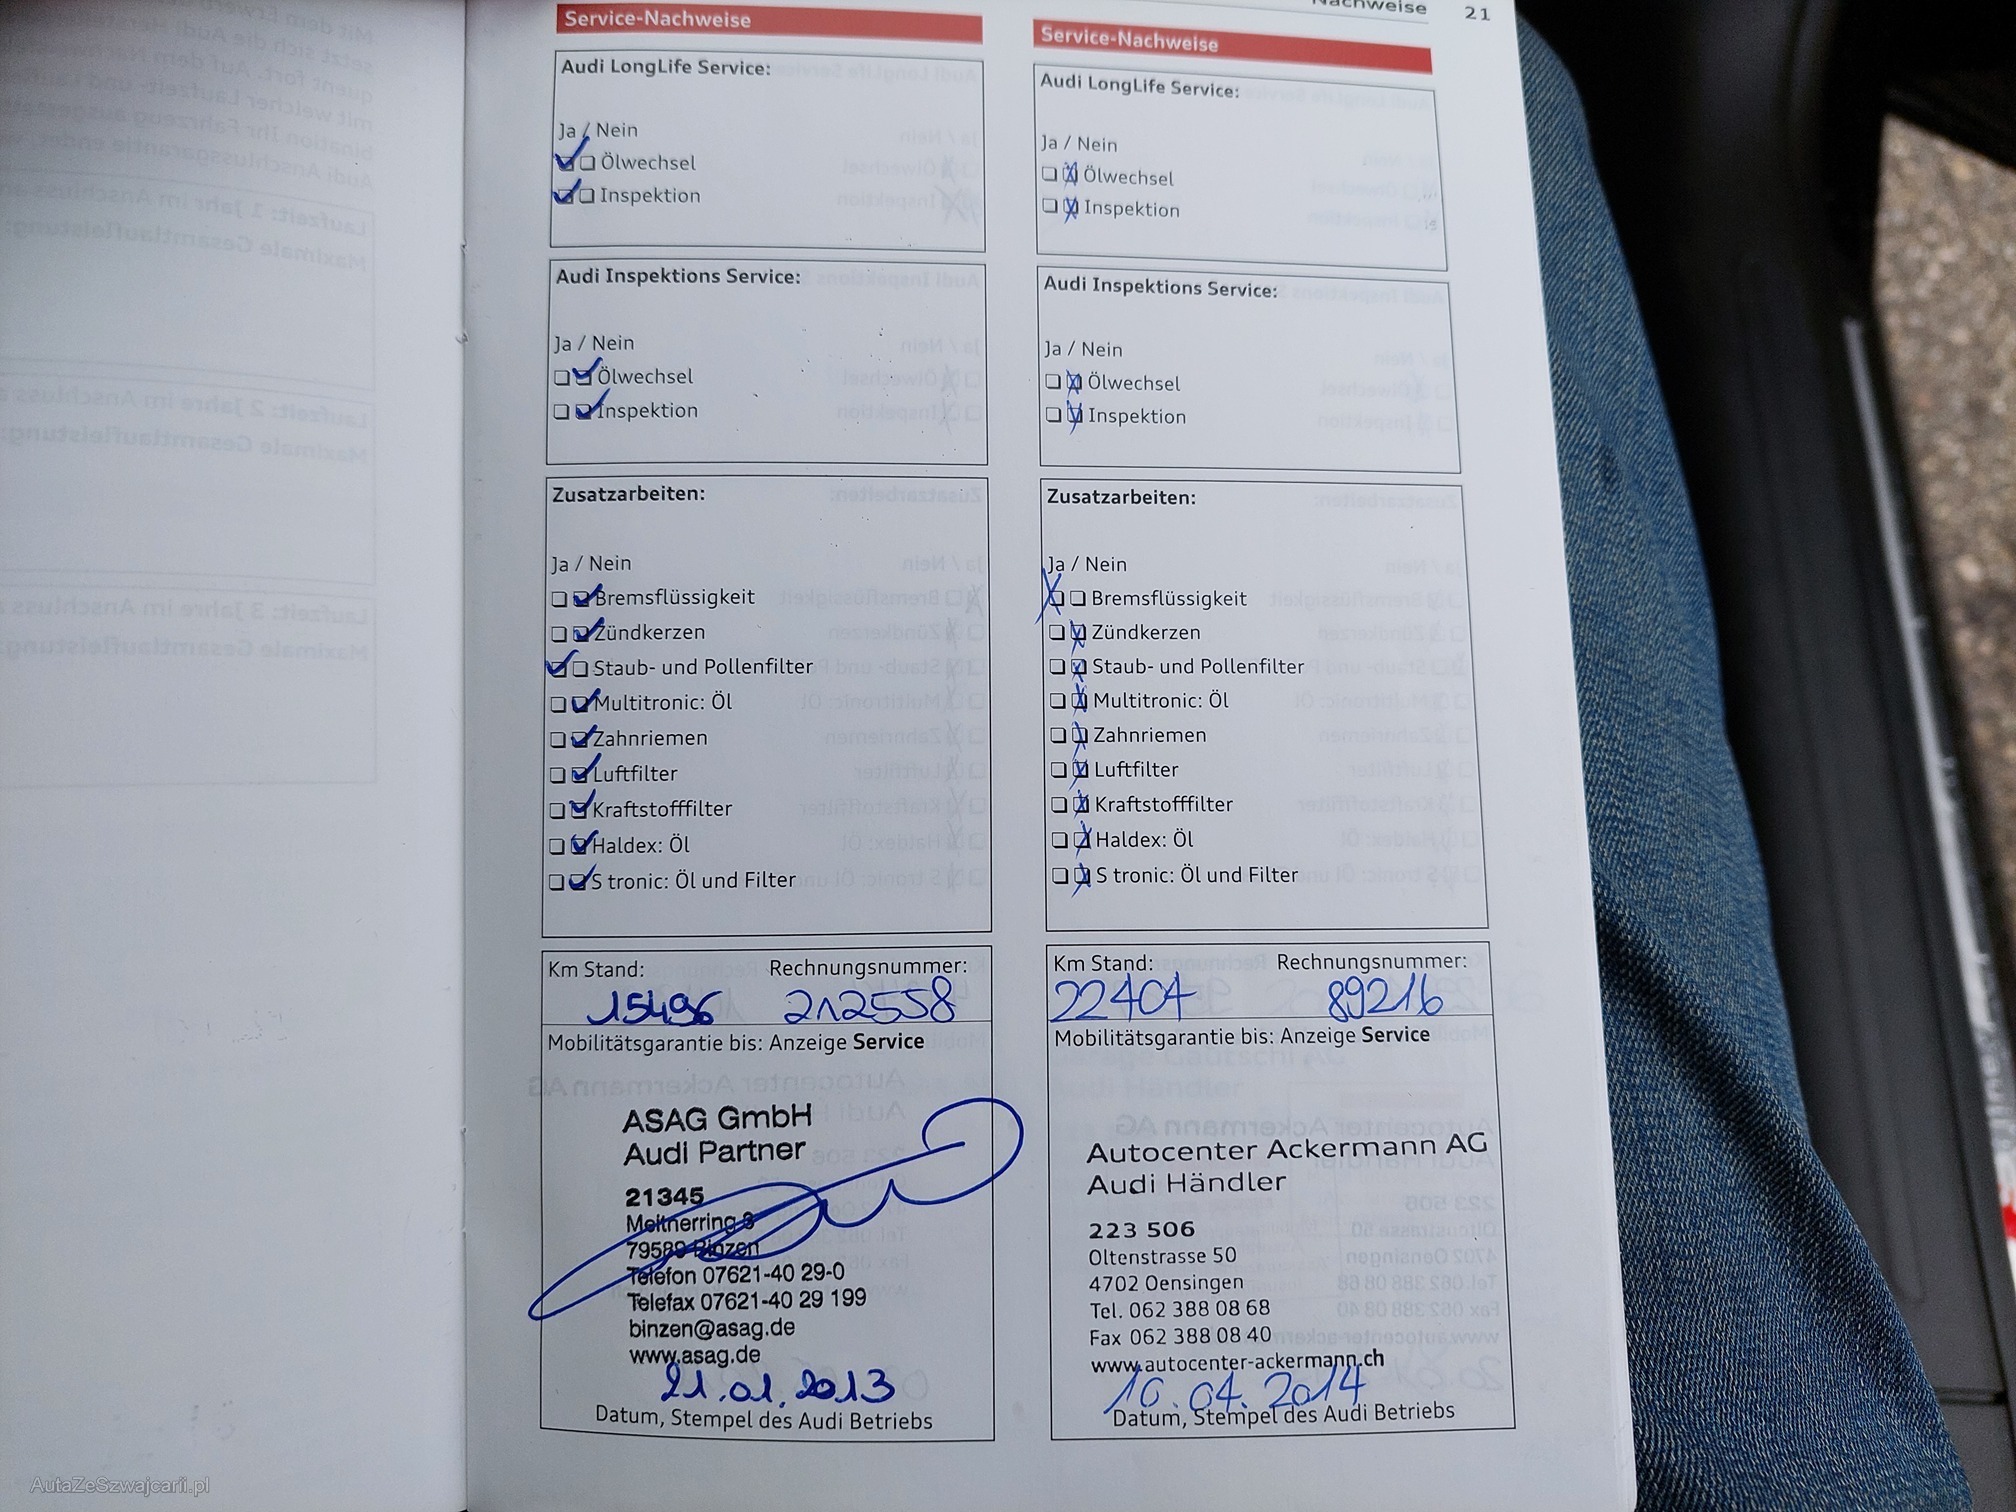 Nachweise 21
Service-Nachweise
Audi LongLife Service:
Ja / Nein
Ölwechsel
Inspektion
Audi Inspektions Service:
Ja / Nein
Ölwechsel
Inspektion
Zusatzarbeiten:
Ja / Nein
Bremsflüssigkeit
Zündkerzen
Staub- und Pollenfilter
Multitronic: Öl
Zahnriemen
Luftfilter
Kraftstofffilter
Haldex: Öl
S tronic: Öl und Filter
Km Stand: Rechnungsnummer:
15496 212558
Mobilitätsgarantie bis: Anzeige Service
ASAG GmbH
Audi Partner
21345
Meitnerring 8
79589 Binzen
Telefon 07621-40 29-0
Telefax 07621-40 29 199
binzen@asag.de
www.asag.de
21.01.2013
Datum, Stempel des Audi Betriebs
Service-Nachweise
Audi LongLife Service:
Ja / Nein
Ölwechsel
Inspektion
Audi Inspektions Service:
Ja / Nein
Ölwechsel
Inspektion
Zusatzarbeiten:
Ja / Nein
Bremsflüssigkeit
Zündkerzen
Staub- und Pollenfilter
Multitronic: Öl
Zahnriemen
Luftfilter
Kraftstofffilter
Haldex: Öl
S tronic: Öl und Filter
Km Stand: Rechnungsnummer:
22404 89216
Mobilitätsgarantie bis: Anzeige Service
Autocenter Ackermann AG
Audi Händler
223 506
Oltenstrasse 50
4702 Oensingen
Tel. 062 388 08 68
Fax 062 388 08 40
www.autocenter-ackermann.ch
10.04.2014
Datum, Stempel des Audi Betriebs
AutaZeSzwajcarii.pl